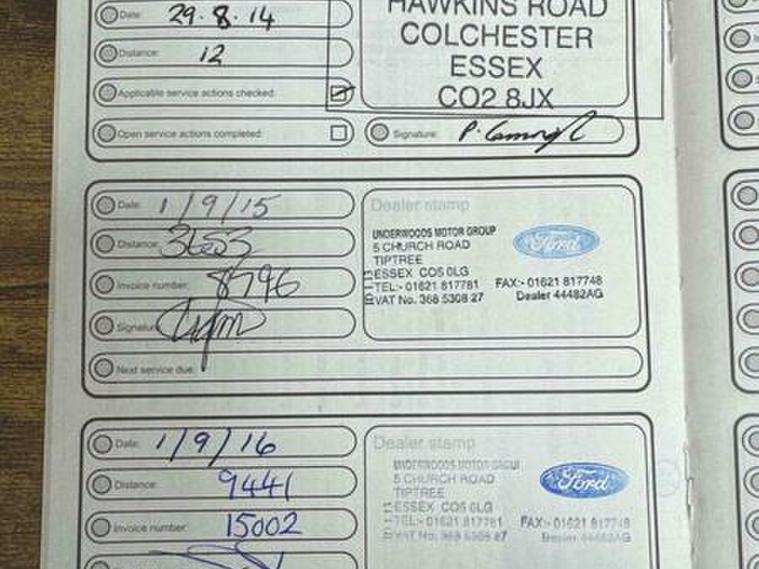 Date: 29.8.14
Distance: 12
Applicable service actions checked:
Open service actions completed:
HAWKINS ROAD
COLCHESTER
ESSEX
CO2 8JX
Signature:
Date: 1/9/15
Distance: 3653
Invoice number: 8796
Signature
Next service due:
Dealer stamp
UNDERWOODS MOTOR GROUP
5 CHURCH ROAD
TIPTREE
ESSEX CO5 0LG
TEL:- 01621 817781 FAX:- 01621 817748
VAT No. 368 5308 27 Dealer 44482AG
Ford
Date: 1/9/16
Distance: 9441
Invoice number: 15002
Dealer stamp
UNDERWOODS MOTOR GROUP
5 CHURCH ROAD
TIPTREE
ESSEX CO5 0LG
TEL:- 01621 817781 FAX:- 01621 817748
VAT No. 368 5308 27 Dealer 44482AG
Ford